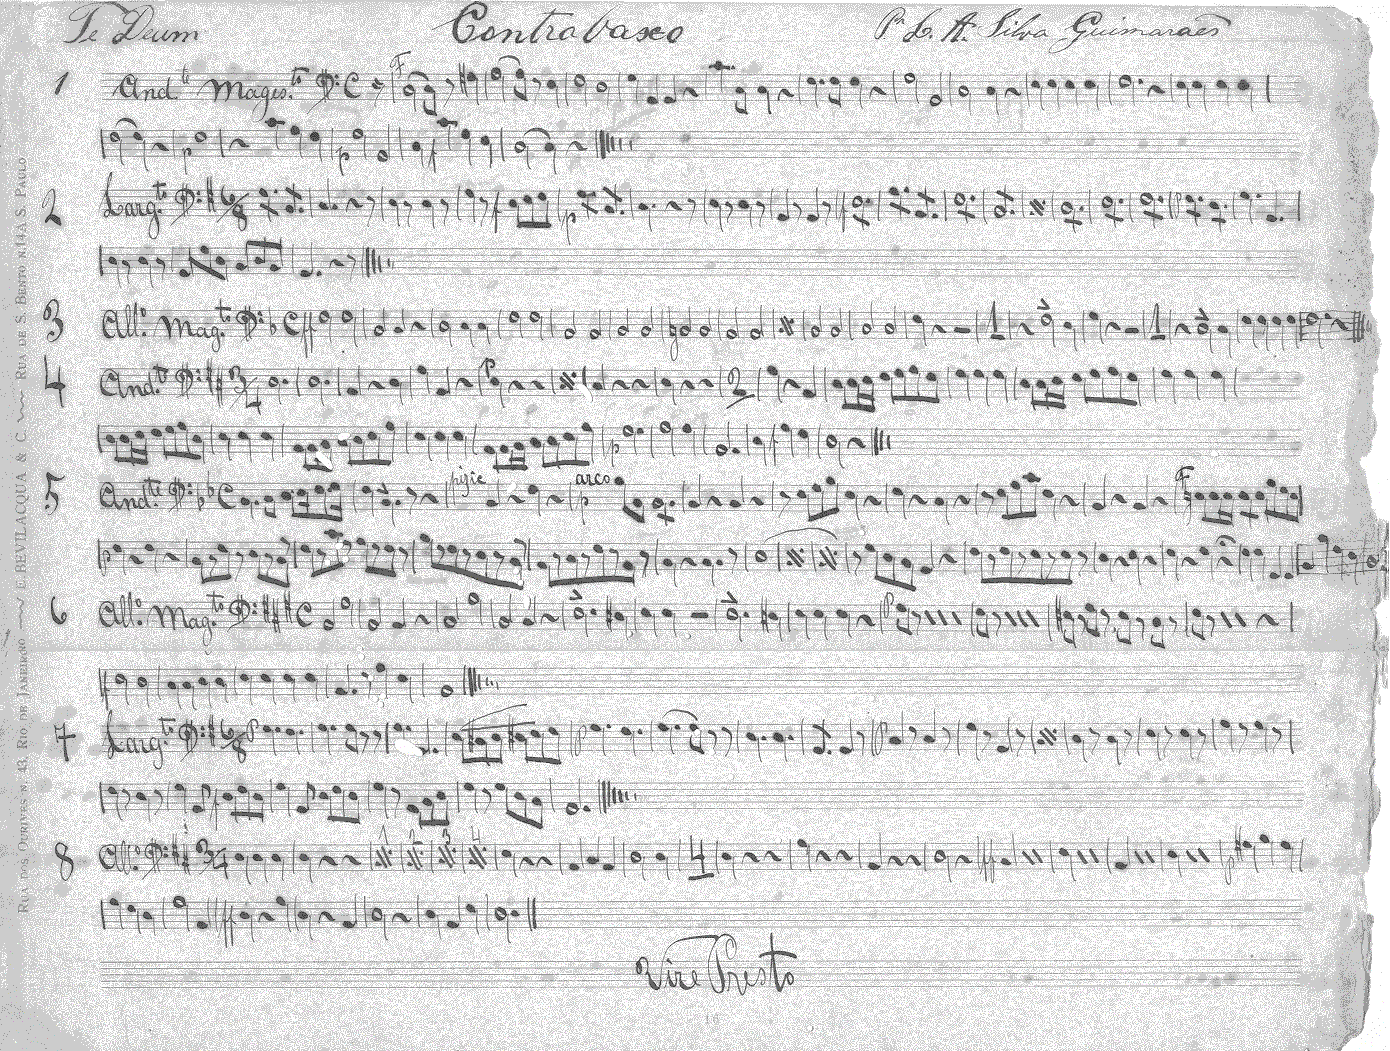 Te Deum Contrabaxo Pr L. A. Silva Guimaraes
1 And.te Magest.to F
2 Larg.to 6/8
3 All.o Mag.to ff 1 1
4 And.te 3/4 2
5 And.te pizie arco F
6 All.o Mag.to
7 Larg.to 6/8
8 All.o 3/4 1 2 3 4 4 ff
ff
Vire Presto
16
RUA DOS OURIVES N. 43, RIO DE JANEIRO E. BEVILACQUA & C. RUA DE S. BENTO N. 14 A S. PAULO